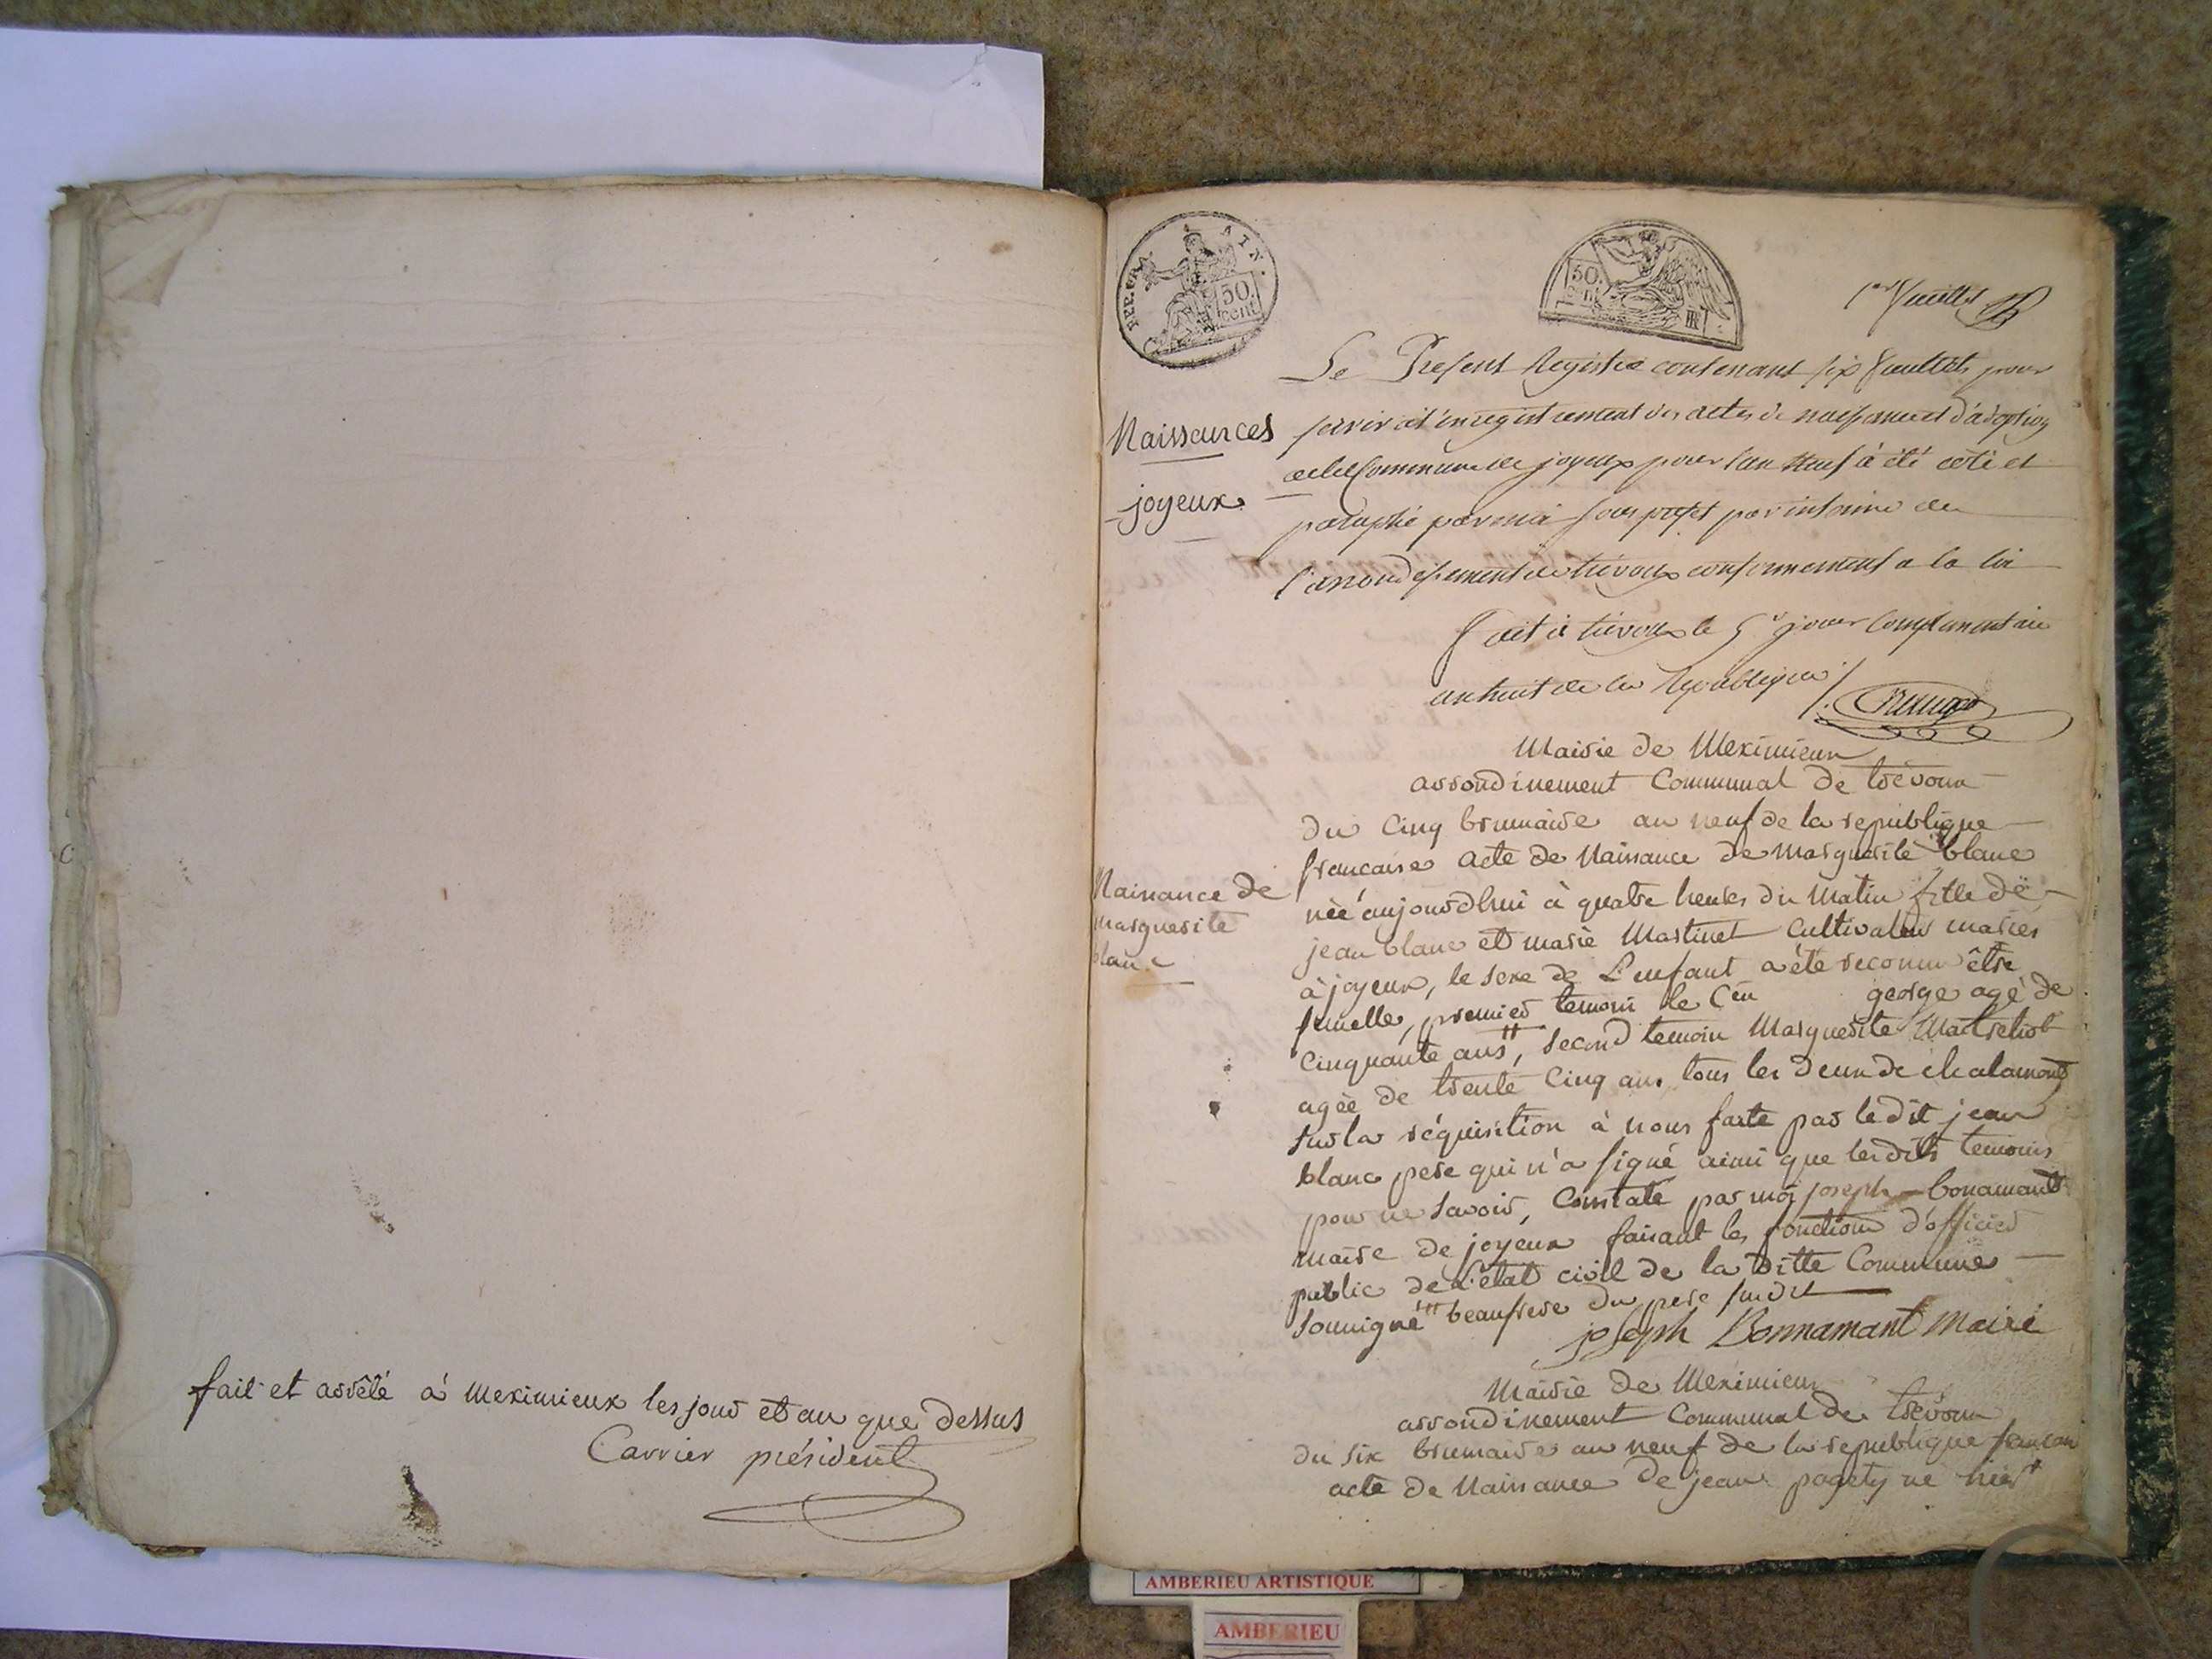 fait et arrêté à Meximieux les jour et an que dessus
Carrier président
REP. FRA.
AIN.
50.
cent.
50.
1er feuillet
Le Présent Registre contenant six feuillets pour
servir à l'enregistrement des actes de naissance et d'adoption
de la Commune de joyeux pour l'an neuf à été coté et
paraphé par moi sous prefet par interime de
l'arrondissement de trévoux conformement a la loi
Fait à trévoux le 5e jour Complementaire
an huit de la Republique
Naissances
joyeux
Mairie de Meximieux
arrondissement Communal de trévoux
du cinq brumaire an neuf de la republique
francaise acte de Naissance de marguerite blanc
née aujourdhui à quatre heures du matin fille dë
jean blanc et marie Martinet Cultivateur mariés
à joyeux, le sexe de L'enfant a été reconnu être
femelle, premier temoin le Cen george agé de
cinquante ans, second temoin Marguerite
agée de trente cinq ans tous les deux de chalamont
sur la réquisition à nous faite par ledit jean
blanc pere qui n'a signé ainsi que lesdits temoins
pour ne savoir, Constaté par moi joseph bonamant
maire de joyeux faisant les fonctions d'officier
public de l'état civil de la ditte Commune
soussigné beaufrere du pere susdit
joseph Bonnamant maire
Naissance de
marguerite
blanc
Mairie de Meximieux
arrondissement Communal de trévoux
du six brumaire an neuf de la republique
acte de Naissance de jean pagety né hier
AMBERIEU ARTISTIQUE
AMBERIEU